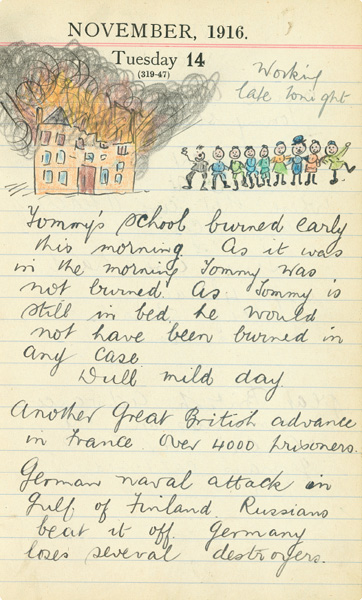 NOVEMBER, 1916.
Tuesday 14
(319-47)
Working
late tonight
Tommy's school burned early
this morning. As it was
in the morning Tommy was
not burned. As Tommy is
still in bed he would
not have been burned in
any case
Dull mild day.
Another Great British advance
in France. Over 4000 prisoners.
German naval attack in
Gulf of Finland. Russians
beat it off. Germany
loses several destroyers.